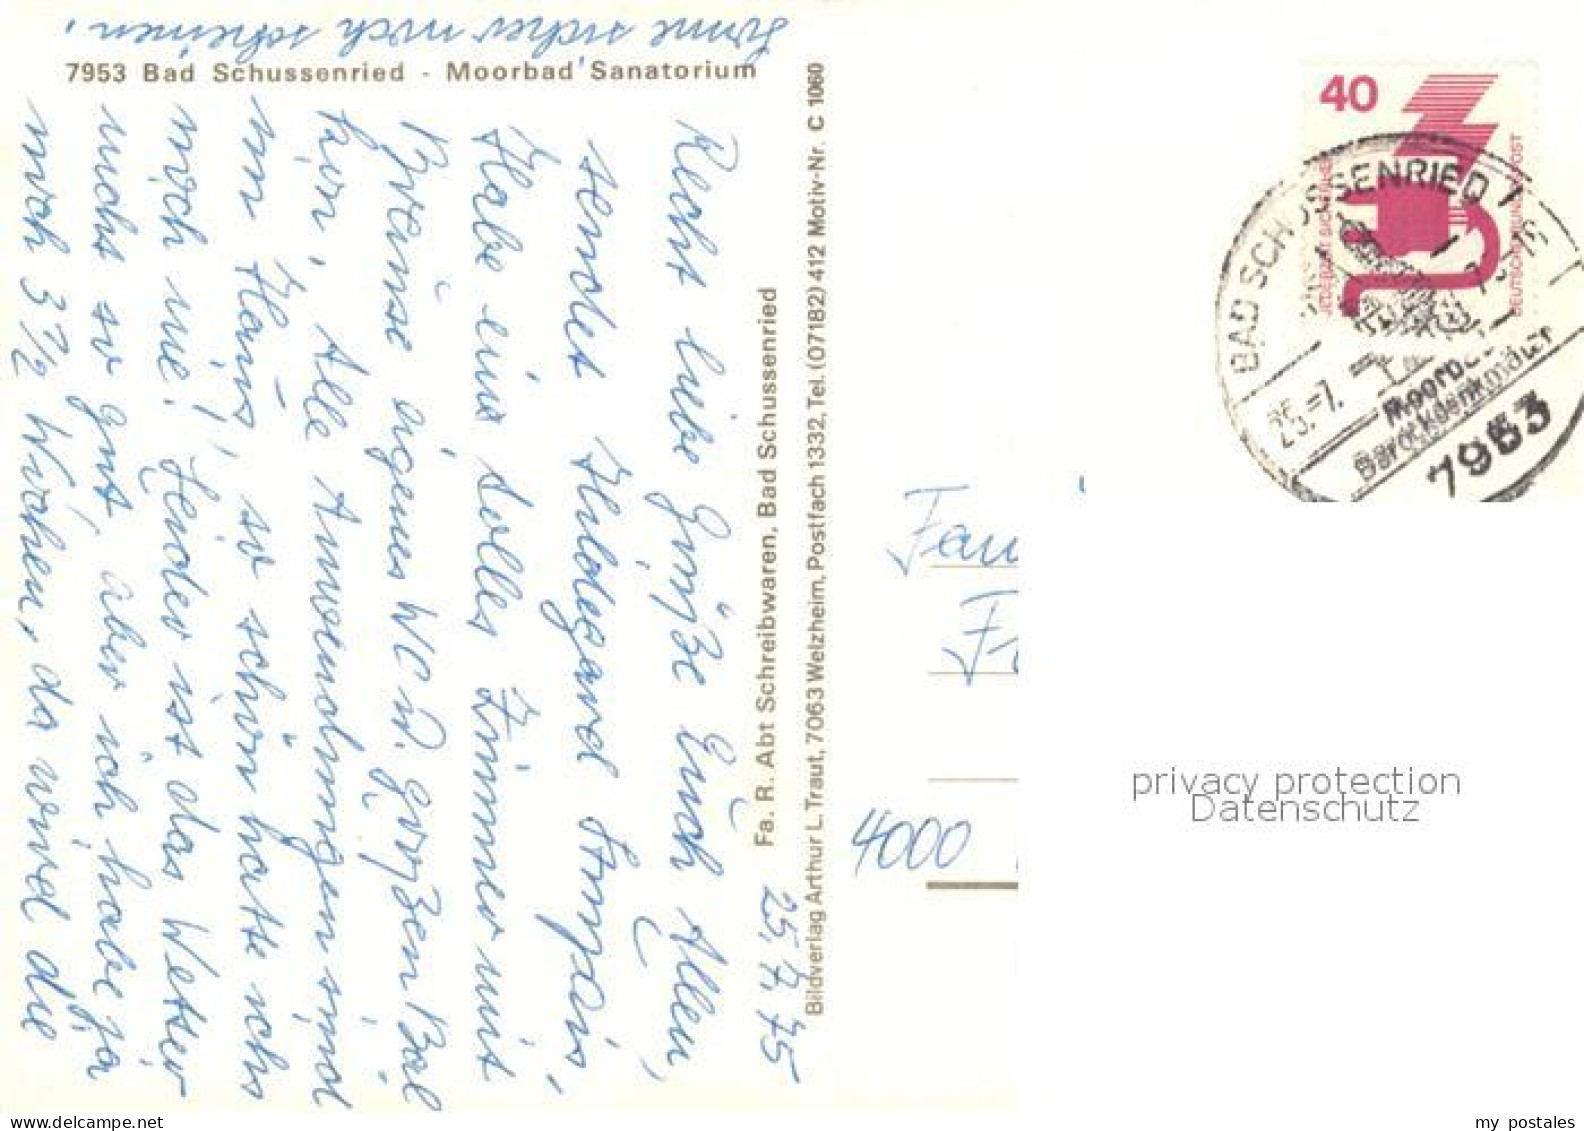 7953 Bad Schussenried - Moorbad Sanatorium
25.7.75
Recht liebe Grüße Euch Allen,
sendet Hildegard
Habe eine tolles Zimmer mit
Brause eigenes WC u. großen Bal
kon, Alle Anwendungen sind
im Haus, so schön hatte ichs
noch nie! Leider ist das Wetter
nicht so gut, aber ich habe ja
noch 3 1/2 Wochen, da wird die
Sonne sicher noch scheinen.
Fa. R. Abt Schreibwaren, Bad Schussenried
Bildverlag Arthur L. Traut, 7063 Welzheim, Postfach 1332, Tel. (07182) 412 Motiv-Nr. C 1060
40
JEDERZEIT SICHERHEIT
DEUTSCHE BUNDESPOST
BAD SCHUSSENRIED 1
25.-7.
Moorbad
Barockdenkmäler
7953
Fam
Fr
4000
privacy protection
Datenschutz
my postales